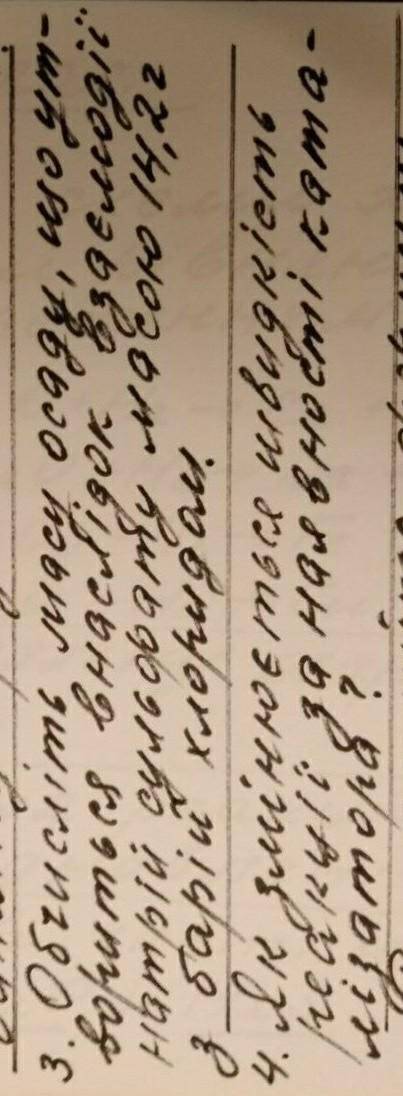 3. Обчисліть масу осаду, що ут-
вориться внаслідок взаємодії
натрій сульфату масою 14,2 г
з барій хлоридом.
4. Як змінюється швидкість
реакції за наявності ката-
лізатора?